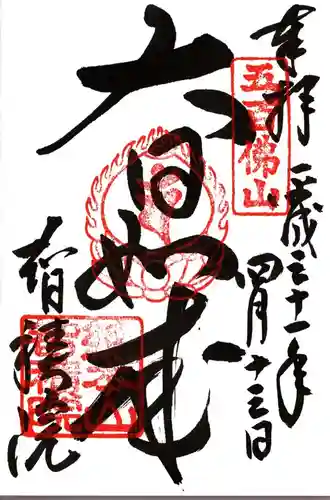 奉拝
平成三十一年
四月十三日
五百佛山
大日如来
智積院